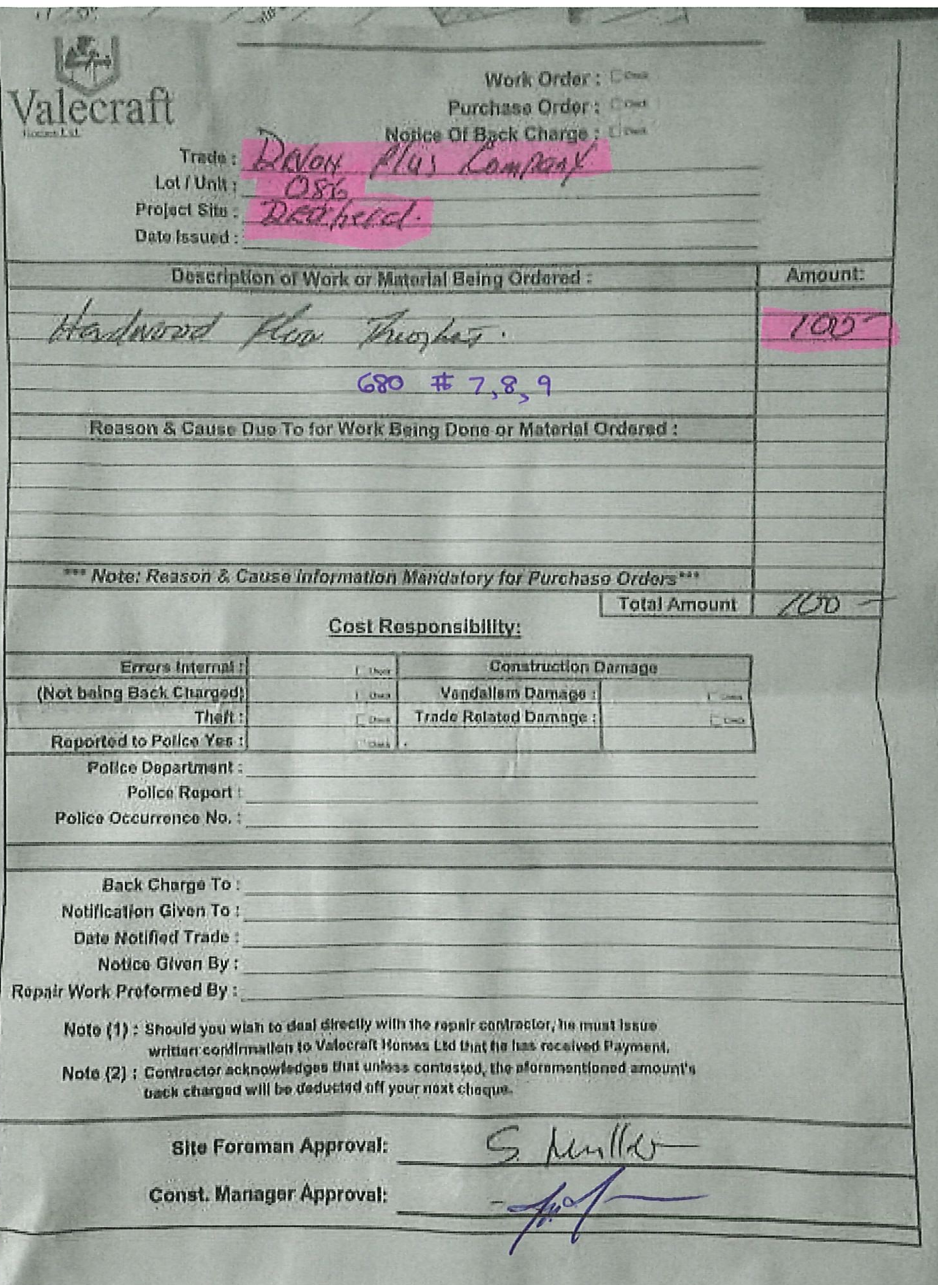 Valecraft
Homes Ltd.
Work Order : Check
Purchase Order : Check
Notice Of Back Charge : Check
Trade : Devon Plus Company
Lot / Unit : 086
Project Site :
Date Issued :
Description of Work or Material Being Ordered : Amount:
Hardwood Floor 100
680 # 7,8,9
Reason & Cause Due To for Work Being Done or Material Ordered :
*** Note: Reason & Cause information Mandatory for Purchase Orders***
Total Amount 100 —
Cost Responsibility:
Errors Internal : Check Construction Damage
(Not being Back Charged) Check Vandalism Damage : Check
Theft : Check Trade Related Damage : Check
Reported to Police Yes : Check
Police Department :
Police Report :
Police Occurrence No. :
Back Charge To :
Notification Given To :
Date Notified Trade :
Notice Given By :
Repair Work Preformed By :
Note (1) : Should you wish to deal directly with the repair contractor, he must issue
written confirmation to Valecraft Homes Ltd that he has received Payment.
Note (2) : Contractor acknowledges that unless contested, the aforementioned amount's
back charged will be deducted off your next cheque.
Site Foreman Approval: S.
Const. Manager Approval: